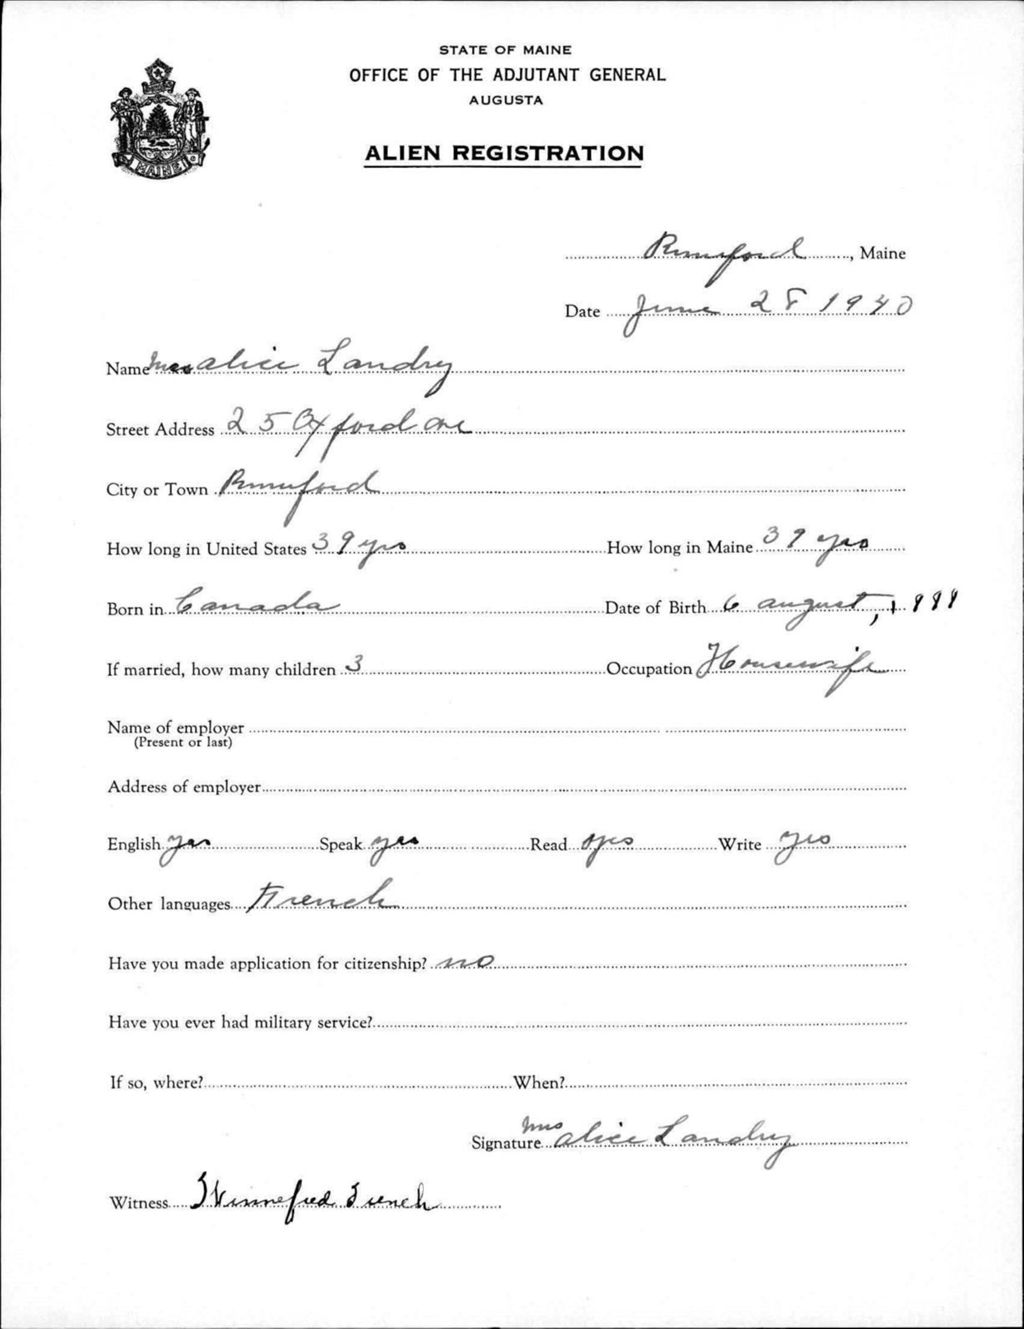 STATE OF MAINE
OFFICE OF THE ADJUTANT GENERAL
AUGUSTA
ALIEN REGISTRATION
MAINE
Rumford, Maine
Date June 28 1940
Name Mrs Alice Landry
Street Address 25 Oxford ave
City or Town Rumford
How long in United States 39 yrs How long in Maine 39 yrs
Born in Canada Date of Birth 6 august,
If married, how many children 3 Occupation Housewife
Name of employer
(Present or last)
Address of employer
English yes Speak yes Read yes Write yes
Other languages French
Have you made application for citizenship? no
Have you ever had military service?
If so, where? When?
Signature Mrs Alice Landry
Witness Winnefred French